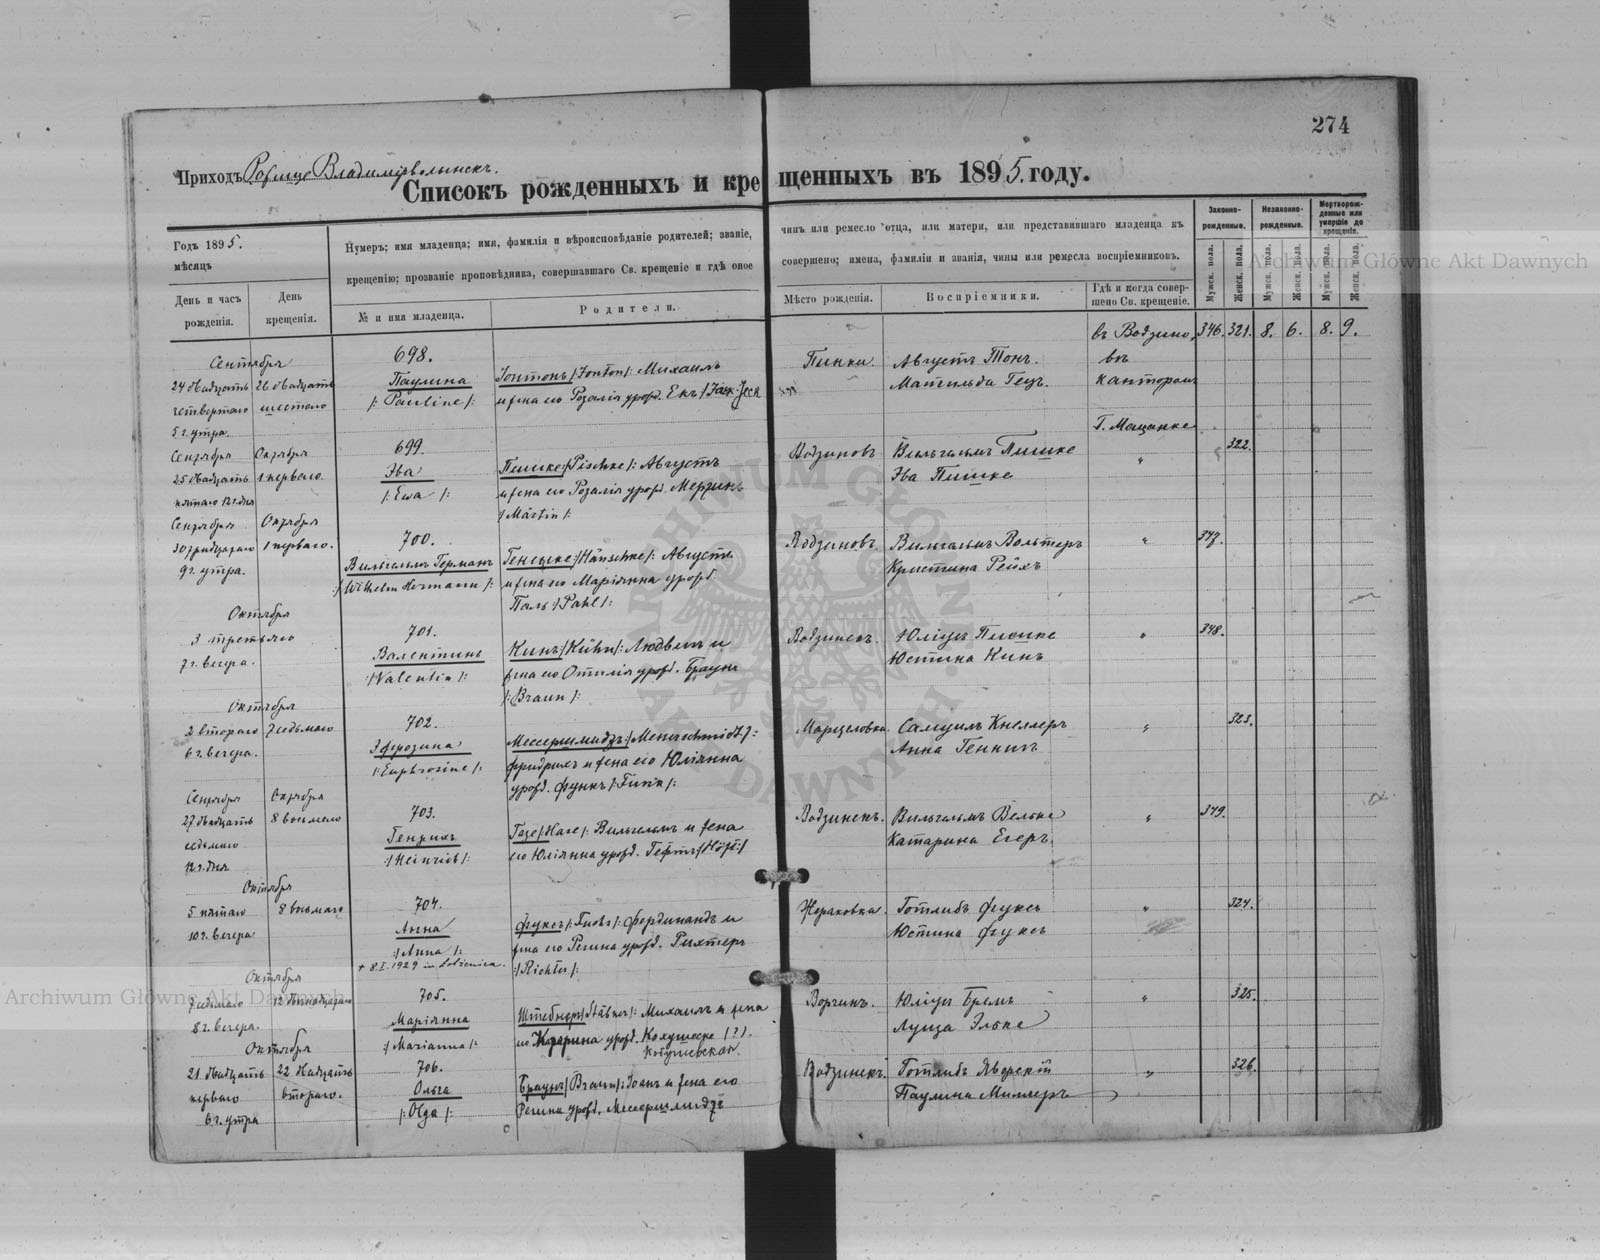 274
Приходъ Рожище Владимірволынскъ.
Списокъ рожденныхъ и крещенныхъ въ 1895. году.
Годъ 1895.
мѣсяцъ
Нумеръ; имя младенца; имя, фамилія и вѣроисповѣданіе родителей; званіе,
крещенію; прозваніе проповѣдника, совершавшаго Св. крещеніе и гдѣ оное
чинъ или ремесло отца, или матери, или представившаго младенца къ
совершено; имена, фамиліи и званія, чины или ремесла воспріемниковъ.
Законно-
рожденные.
Незаконно-
рожденные.
Мертворож-
денные или
умершіе до
крещенія.
День и часъ
рожденія.
День
крещенія.
№ и имя младенца.
Родители.
Мѣсто рожденія.
Воспріемники.
Гдѣ и когда совер-
шено Св. крещеніе.
Мужск. пола.
Женск. пола.
Мужск. пола.
Женск. пола.
Мужск. пола.
Женск. пола.
Archiwum Główne Akt Dawnych
въ Водзино, 346. 321. 8. 6. 8. 9.
Сентября
698.
24 двадцать 26 двадцать
четвертаго шестого
5 г. утра.
Паулина
/: Pauline /:
Іонтонъ /:Jonton/: Михаилъ
и жена его Розалія урожд. Екъ /: Jeck
Пинки
Августъ Тонъ.
Матильда Гецъ.
въ
канторомъ
Г. Мацанке
Сентября Октября
699.
25 двадцать 1 перваго.
пятаго 12 г. дня
Эва
/: Ewa /:
Пишке /:Pischke/: Августъ
и жена его Розалія урожд. Мерзинъ
/: Märtin /:
Водзиновъ
Вильгельмъ Пишке
Эва Пишке
"
322.
Сентября Октября
700.
30 тридцатаго 1 перваго.
9 г. утра.
Вильгельмъ Германъ
/: Wilhelm Hermann /:
Генешке /:Hänschke/: Августъ
и жена его Маріянна урожд.
Паль /: Pahl /:
Водзиновъ.
Вильгельмъ Вольтеръ
Кристина Рейхъ
"
347.
Октября
3 третьяго
7 г. вечера.
701.
Валентинъ
/: Valentin /:
Кинъ /:Kühn/: Людвигъ и
жена его Отилія урожд. Браунъ
/: Braun /:
Водзинекъ.
Юліусъ Пишке
Юстина Кинъ
"
348.
Октября
2 втораго 7 седьмаго
6 г. вечера.
702.
Эфрозина
/: Euphrosine /:
Мессершмидтъ /: Messerschmidt /:
Фридрихъ и жена его Юліянна
урожд. Функъ /: Funk /:
Марцеловка
Самуилъ Кнеллеръ
Анна Геннигъ
"
323.
Сентября Октября
27 двадцать 8 восьмого
седьмаго
12 г. дня
703.
Генрихъ
/: Heinrich /:
Газе /:Hase/: Вильгельмъ и жена
его Юліянна урожд. Гефтъ /: Höft /:
Водзинекъ.
Вильгельмъ Вельке
Катарина Егеръ.
"
349.
Октября
5 пятаго 8 восьмаго
10 г. вечера
704.
Анна
/: Anna /:
+ 8.I.1929 in
Фуксъ /:Fuchs/: Фердинандъ и
жена его Регина урожд. Рихтеръ
/: Richter /:
Жераковка.
Готлибъ Фуксъ
Юстина Фуксъ
"
324.
Октября
7 седьмаго 12 двѣнадцатаго
8 г. вечера.
705.
Маріянна
/: Marianna /:
Штебнеръ /: Stäbner /: Михаилъ и жена
его Катарина урожд. Кохушеске (?).
Кобушевская.
Ворчинъ.
Юліусъ Бремъ
Луиза Эльке
"
325.
Октября
21 двадцать 22 двадцать
перваго втораго.
6 г. утра
706.
Ольга
/: Olga /:
Браунъ /:Braun/: Іоанъ и жена его
Регина урожд. Мессершмидтъ
Водзинекъ.
Готлибъ Яверскій
Паулина Миллеръ
"
326.
Archiwum Główne Akt Dawnych
ARCHIWUM GŁÓWNE AKT DAWNYCH